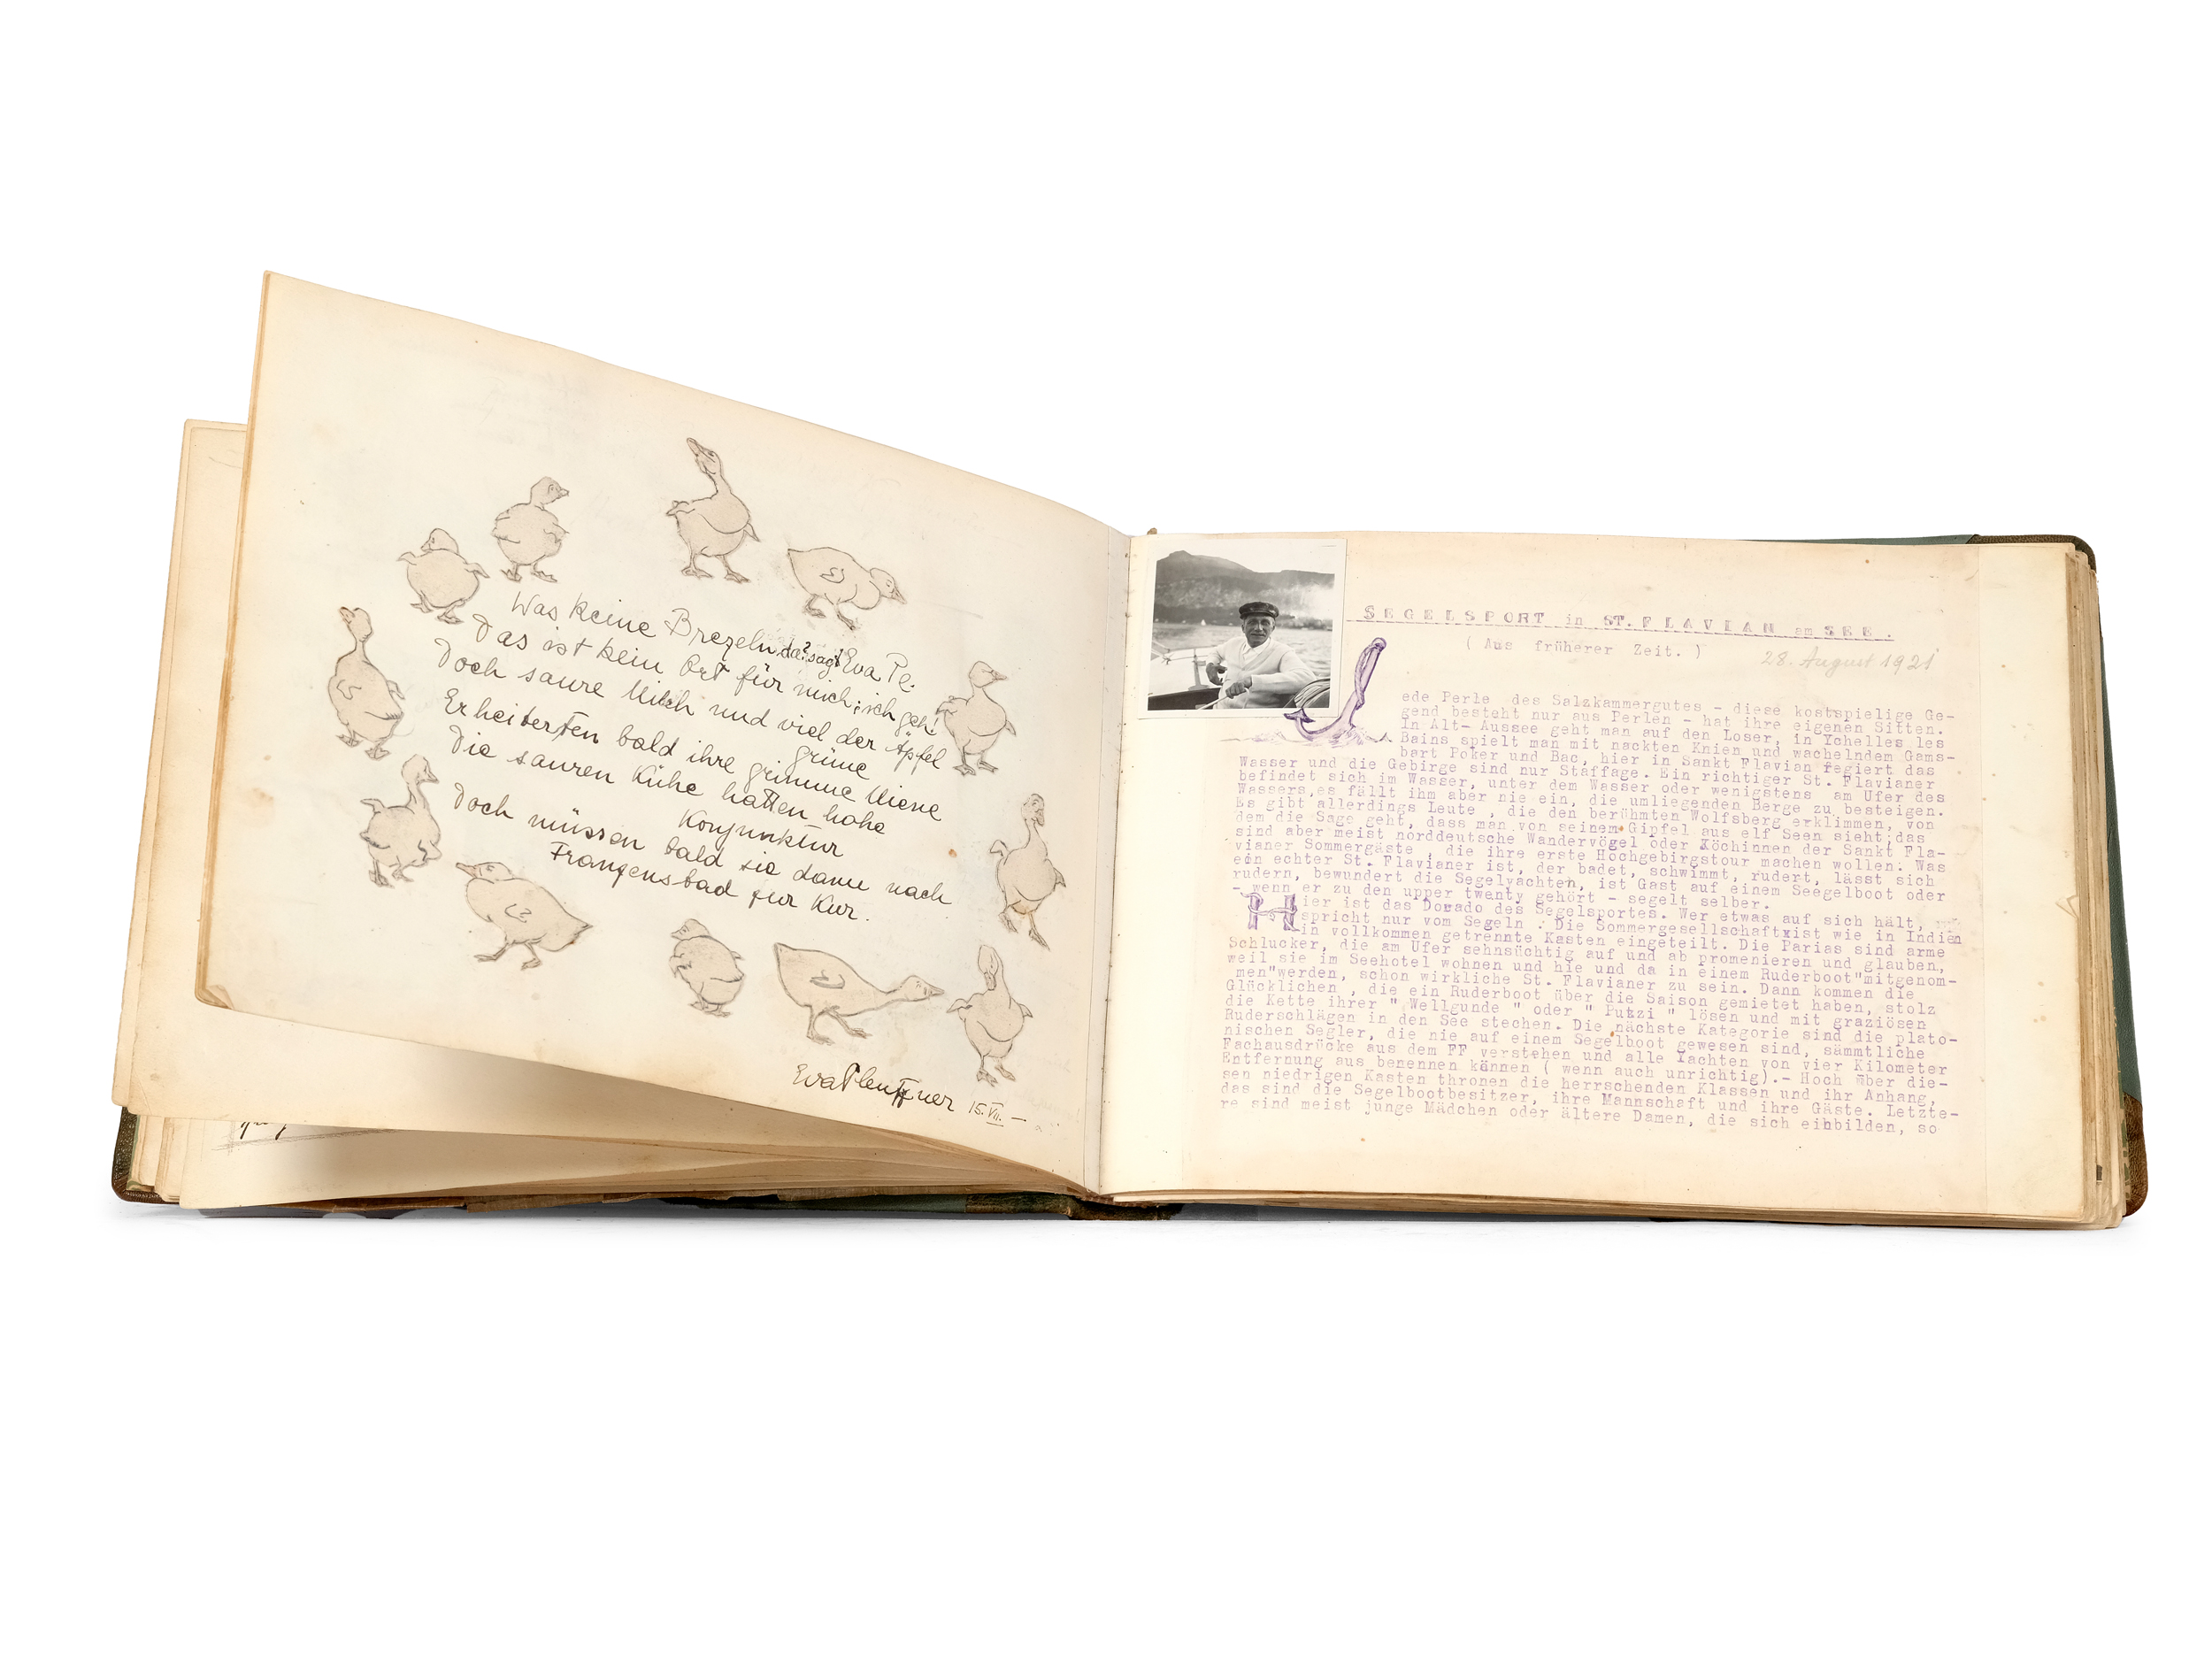 Was keine Brezeln da? sagt Eva Pe.
Das ist kein Ort für mich; ich geh!
Doch saure Milch und viel der Äpfel
grüne
Erheiterten bald ihre grimme Miene
Die sauren Kühe hatten hohe
Konjunktur
Doch müssen bald sie dann nach
Franzensbad zur Kur.
Eva Plentzner 15. VII. —
SEGELSPORT in ST. FLAVIAN am SEE.
( Aus früherer Zeit. )
28. August 1921
ede Perle des Salzkammergutes - diese kostspielige Ge-
gend besteht nur aus Perlen - hat ihre eigenen Sitten.
In Alt- Aussee geht man auf den Loser, in Ychelles les
Bains spielt man mit nackten Knien und wachelndem Gams-
bart Poker und Bac, hier in Sankt Flavian regiert das
Wasser und die Gebirge sind nur Staffage. Ein richtiger St. Flavianer
befindet sich im Wasser, unter dem Wasser oder wenigstens am Ufer des
Wassers,es fällt ihm aber nie ein, die umliegenden Berge zu besteigen.
Es gibt allerdings Leute , die den berühmten Wolfsberg erklimmen, von
dem die Sage geht, dass man von seinem Gipfel aus elf Seen sieht;das
sind aber meist norddeutsche Wandervögel oder Köchinnen der Sankt Fla-
vianer Sommergäste , die ihre erste Hochgebirgstour machen wollen. Was
ein echter St. Flavianer ist, der badet, schwimmt, rudert, lässt sich
rudern, bewundert die Segelyachten, ist Gast auf einem Seegelboot oder
- wenn er zu den upper twenty gehört - segelt selber.
Hier ist das Dorado des Segelsportes. Wer etwas auf sich hält,
spricht nur vom Segeln . Die Sommergesellschaftxist wie in Indien
in vollkommen getrennte Kasten eingeteilt. Die Parias sind arme
Schlucker, die am Ufer sehnsüchtig auf und ab promenieren und glauben,
weil sie im Seehotel wohnen und hie und da in einem Ruderboot"mitgenom-
men"werden, schon wirkliche St. Flavianer zu sein. Dann kommen die
Glücklichen , die ein Ruderboot über die Saison gemietet haben, stolz
die Kette ihrer " Wellgunde " oder " Putzi " lösen und mit graziösen
Ruderschlägen in den See stechen. Die nächste Kategorie sind die plato-
nischen Segler, die nie auf einem Segelboot gewesen sind, sämmtliche
Fachausdrücke aus dem FF verstehen und alle Yachten von vier Kilometer
Entfernung aus benennen kännen ( wenn auch unrichtig).- Hoch über die-
sen niedrigen Kasten thronen die herrschenden Klassen und ihr Anhang,
das sind die Segelbootbesitzer, ihre Mannschaft und ihre Gäste. Letzte-
re sind meist junge Mädchen oder ältere Damen, die sich einbilden, so